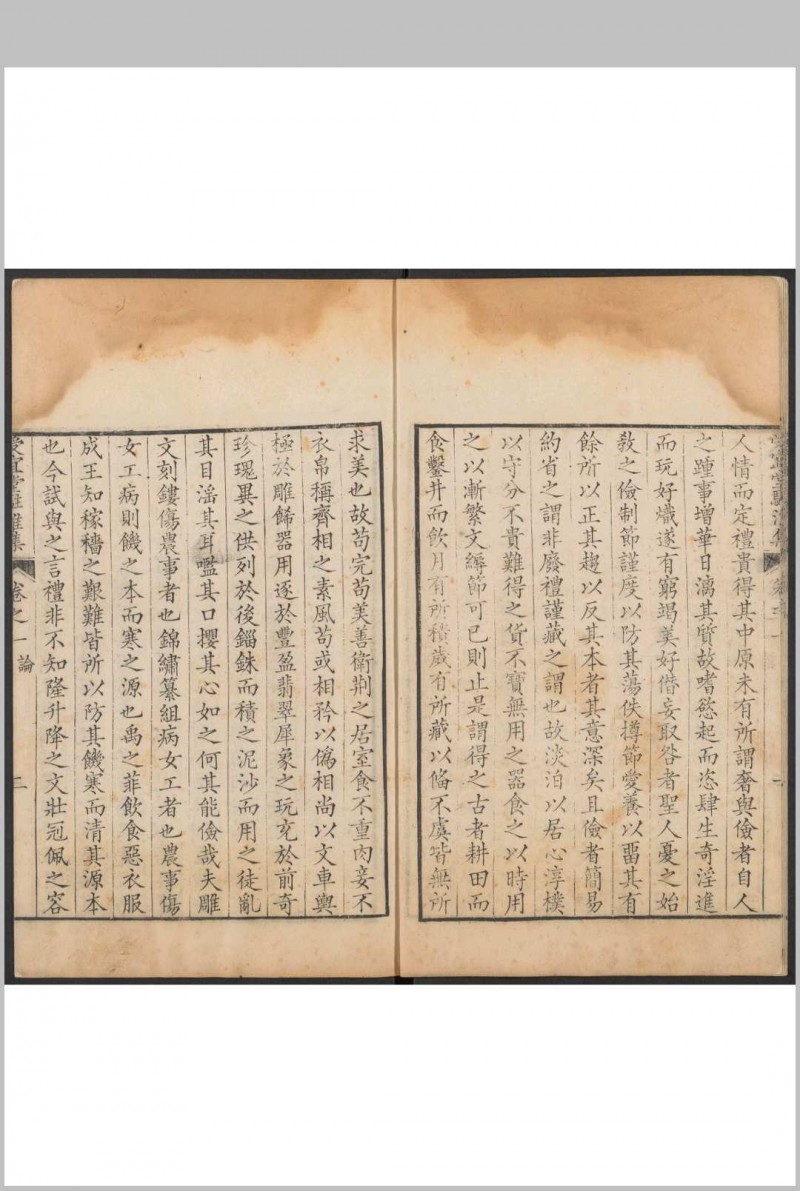 人情而定禮貴得其中原未有所謂奢與儉者自人
之踵事增華日漓其質故嗜慾起而恣肆生奇淫進
而玩好熾遂有窮竭美好僭妄取咎者聖人憂之始
敎之儉制節謹度以防其蕩佚撙節愛養以畱其有
餘所以正其趨以反其本者其意深矣且儉者簡易
約省之謂非廢禮謹藏之謂也故淡泊以居心淳樸
以守分不貴難得之貨不寶無用之器食之以時用
之以漸繁文縟節可已則止是謂得之古者耕田而
食鑿井而飲月有所積歲有所藏以俻不虞皆無所
求美也故苟完苟美善衛荆之居室食不重肉妾不
衣帛稱齊相之素風苟或相矜以僞相尚以文車輿
極於雕餙器用逐於豐盈翡翠犀象之玩充於前奇
珍瑰異之供列於後錙銖而積之泥沙而用之徒亂
其目滛其耳嚂其口攖其心如之何其能儉哉夫雕
文刻鏤傷農事者也錦繡纂組病女工者也農事傷
女工病則饑之本而寒之源也禹之菲飲食惡衣服
成王知稼穡之艱難皆所以防其饑寒而清其源本
也今試與之言禮非不知隆升降之文壯冠佩之容
卷之一 論
二